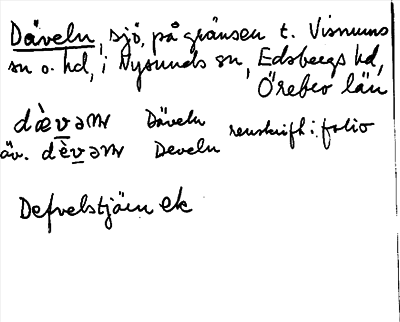 Däveln, sjö, på gränsen t. Visnums
sn o. hd, i Nysunds sn, Edsbergs hd,
Örebro län
dæ̀vəm Däveln renskrift i folio
äv. dèvəm Develn
Defvelstjäin ek